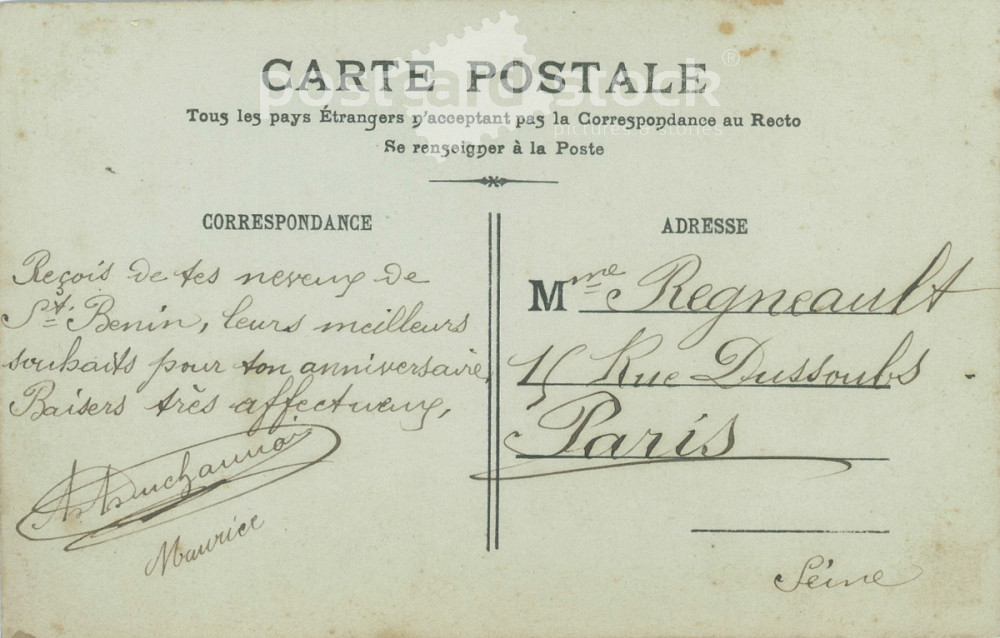 CARTE POSTALE
postcard stock
®
Tous les pays Étrangers n'acceptant pas la Correspondance au Recto
pictures & stories
Se renseigner à la Poste
CORRESPONDANCE
Reçois de tes neveux de
St. Benin, leurs meilleurs
souhaits pour ton anniversaire,
Baisers très affectueux,
Maurice
ADRESSE
Mme Regneault
Rue Dussoubs
Paris
Seine